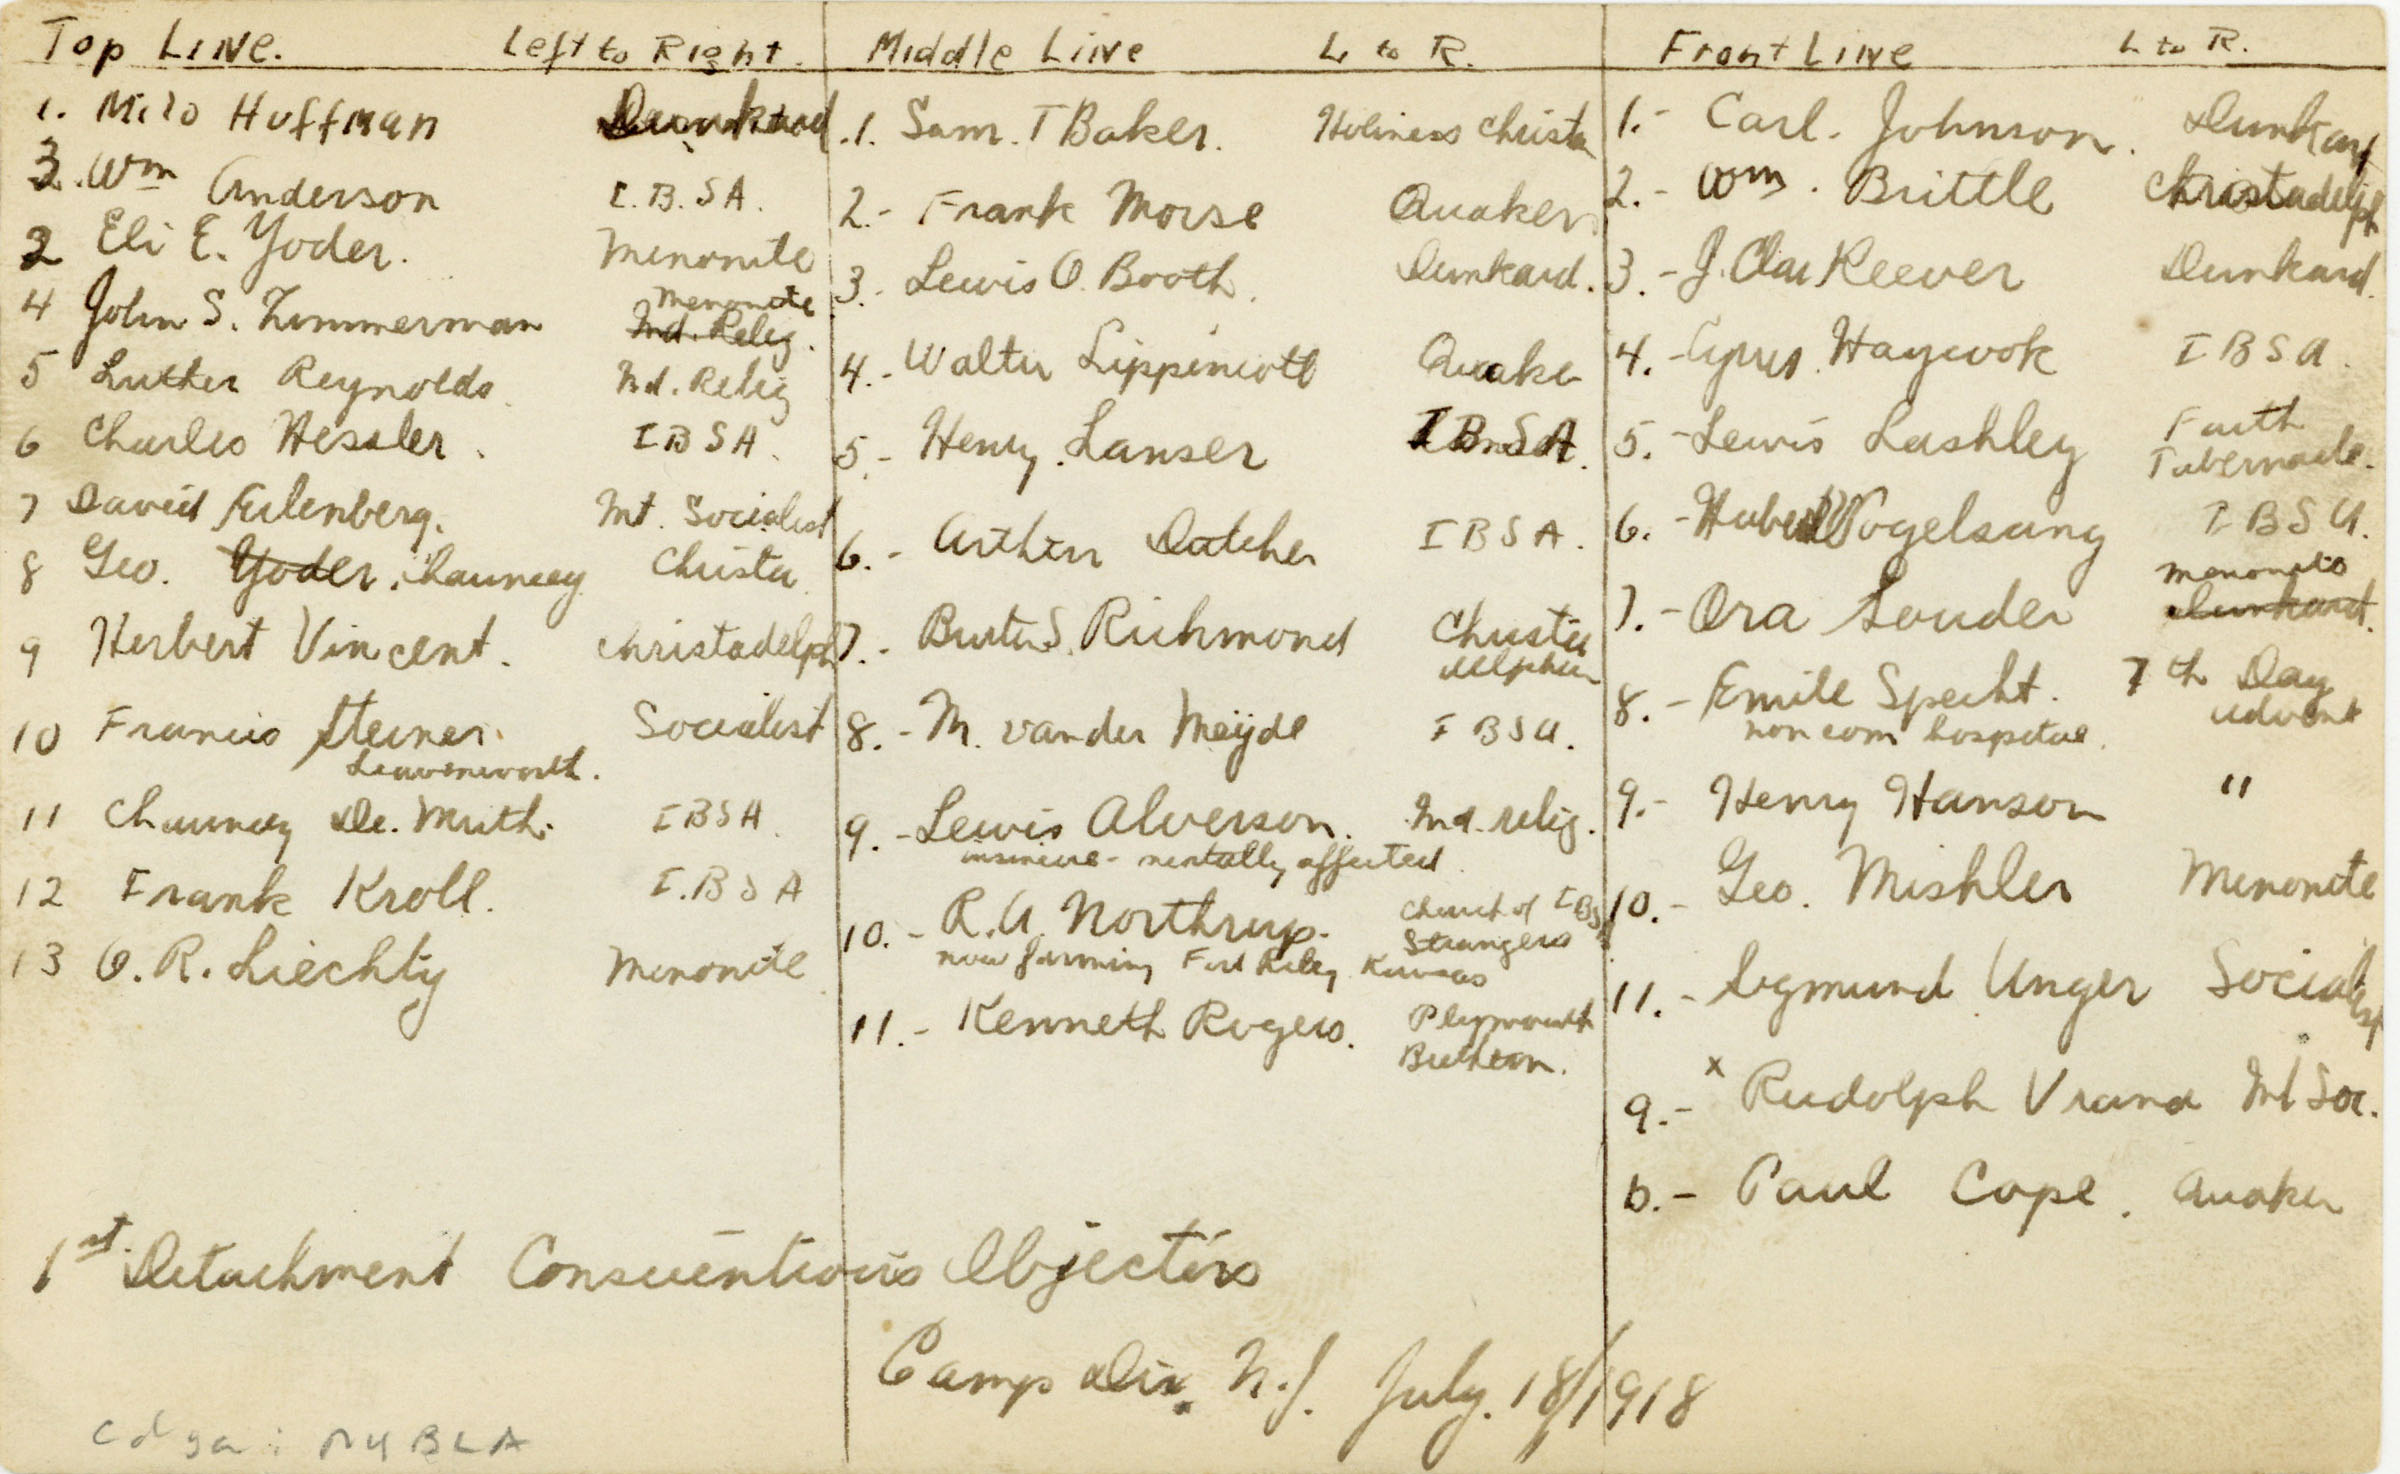 Top Line. Left to Right.
1. Milo Huffman Dunkard
3. Wm Anderson I.B.S.A.
2 Eli E. Yoder. Menonite
4 John S. Zimmerman Menonite
Ind. Relig.
5 Luther Reynolds Ind. Relig
6 Charles Hessler. IBSA.
7 David Eilenberg. Int. Socialist
8 Geo. Yoder. Chauncey Christa
9 Herbert Vincent. Christadelph
10 Francis Steiner. Socialist
Leavenworth.
11 Chauncey De. Muth. IBSA.
12 Frank Kroll. I.BSA
13 O. R. Liechty Menonite
Middle Line L to R.
1. Sam. T Baker. Holiness Christa
2.- Frank Morse Quaker
3.- Lewis O. Booth. Dunkard.
4.- Walter Lippincott Quaker
5.- Henry. Lanser IBSA.
6.- Arthur Datcher IBSA.
7.- Burton S. Richmond Christa
delphian
8.- M. vander Meijde IBSA.
9.- Lewis Alverson. Ind. relig.
insincere - mentally affected
10.- R. A. Northrup. Church of IBS
Strangers
now farming Fort Riley Kansas
11.- Kenneth Rogers. Plymouth
Brethern.
Front Line L to R.
1.- Carl. Johnson. Dunkard
2.- Wm. Brittle Christadelph
3.- J. Clar Keever Dunkard.
4.- Cyrus. Haywok IBSA.
5.- Lewis Lashley Faith
Tabernacle.
6.- Hubert Vogelsang IBSA.
Menonite
7.- Ora Souder Dunkard.
8.- Emile Specht. 7th Day
Advent
non com hospital.
9.- Henry Hanson "
10.- Geo. Mishler Menonite
11.- Sigmund Unger Socialist
a.- x Rudolph Vrana Int Soc.
b.- Paul Cope. Quaker
1st. Detachment Conscientious Objectors
Camp Dix, N.J. July. 18/1918